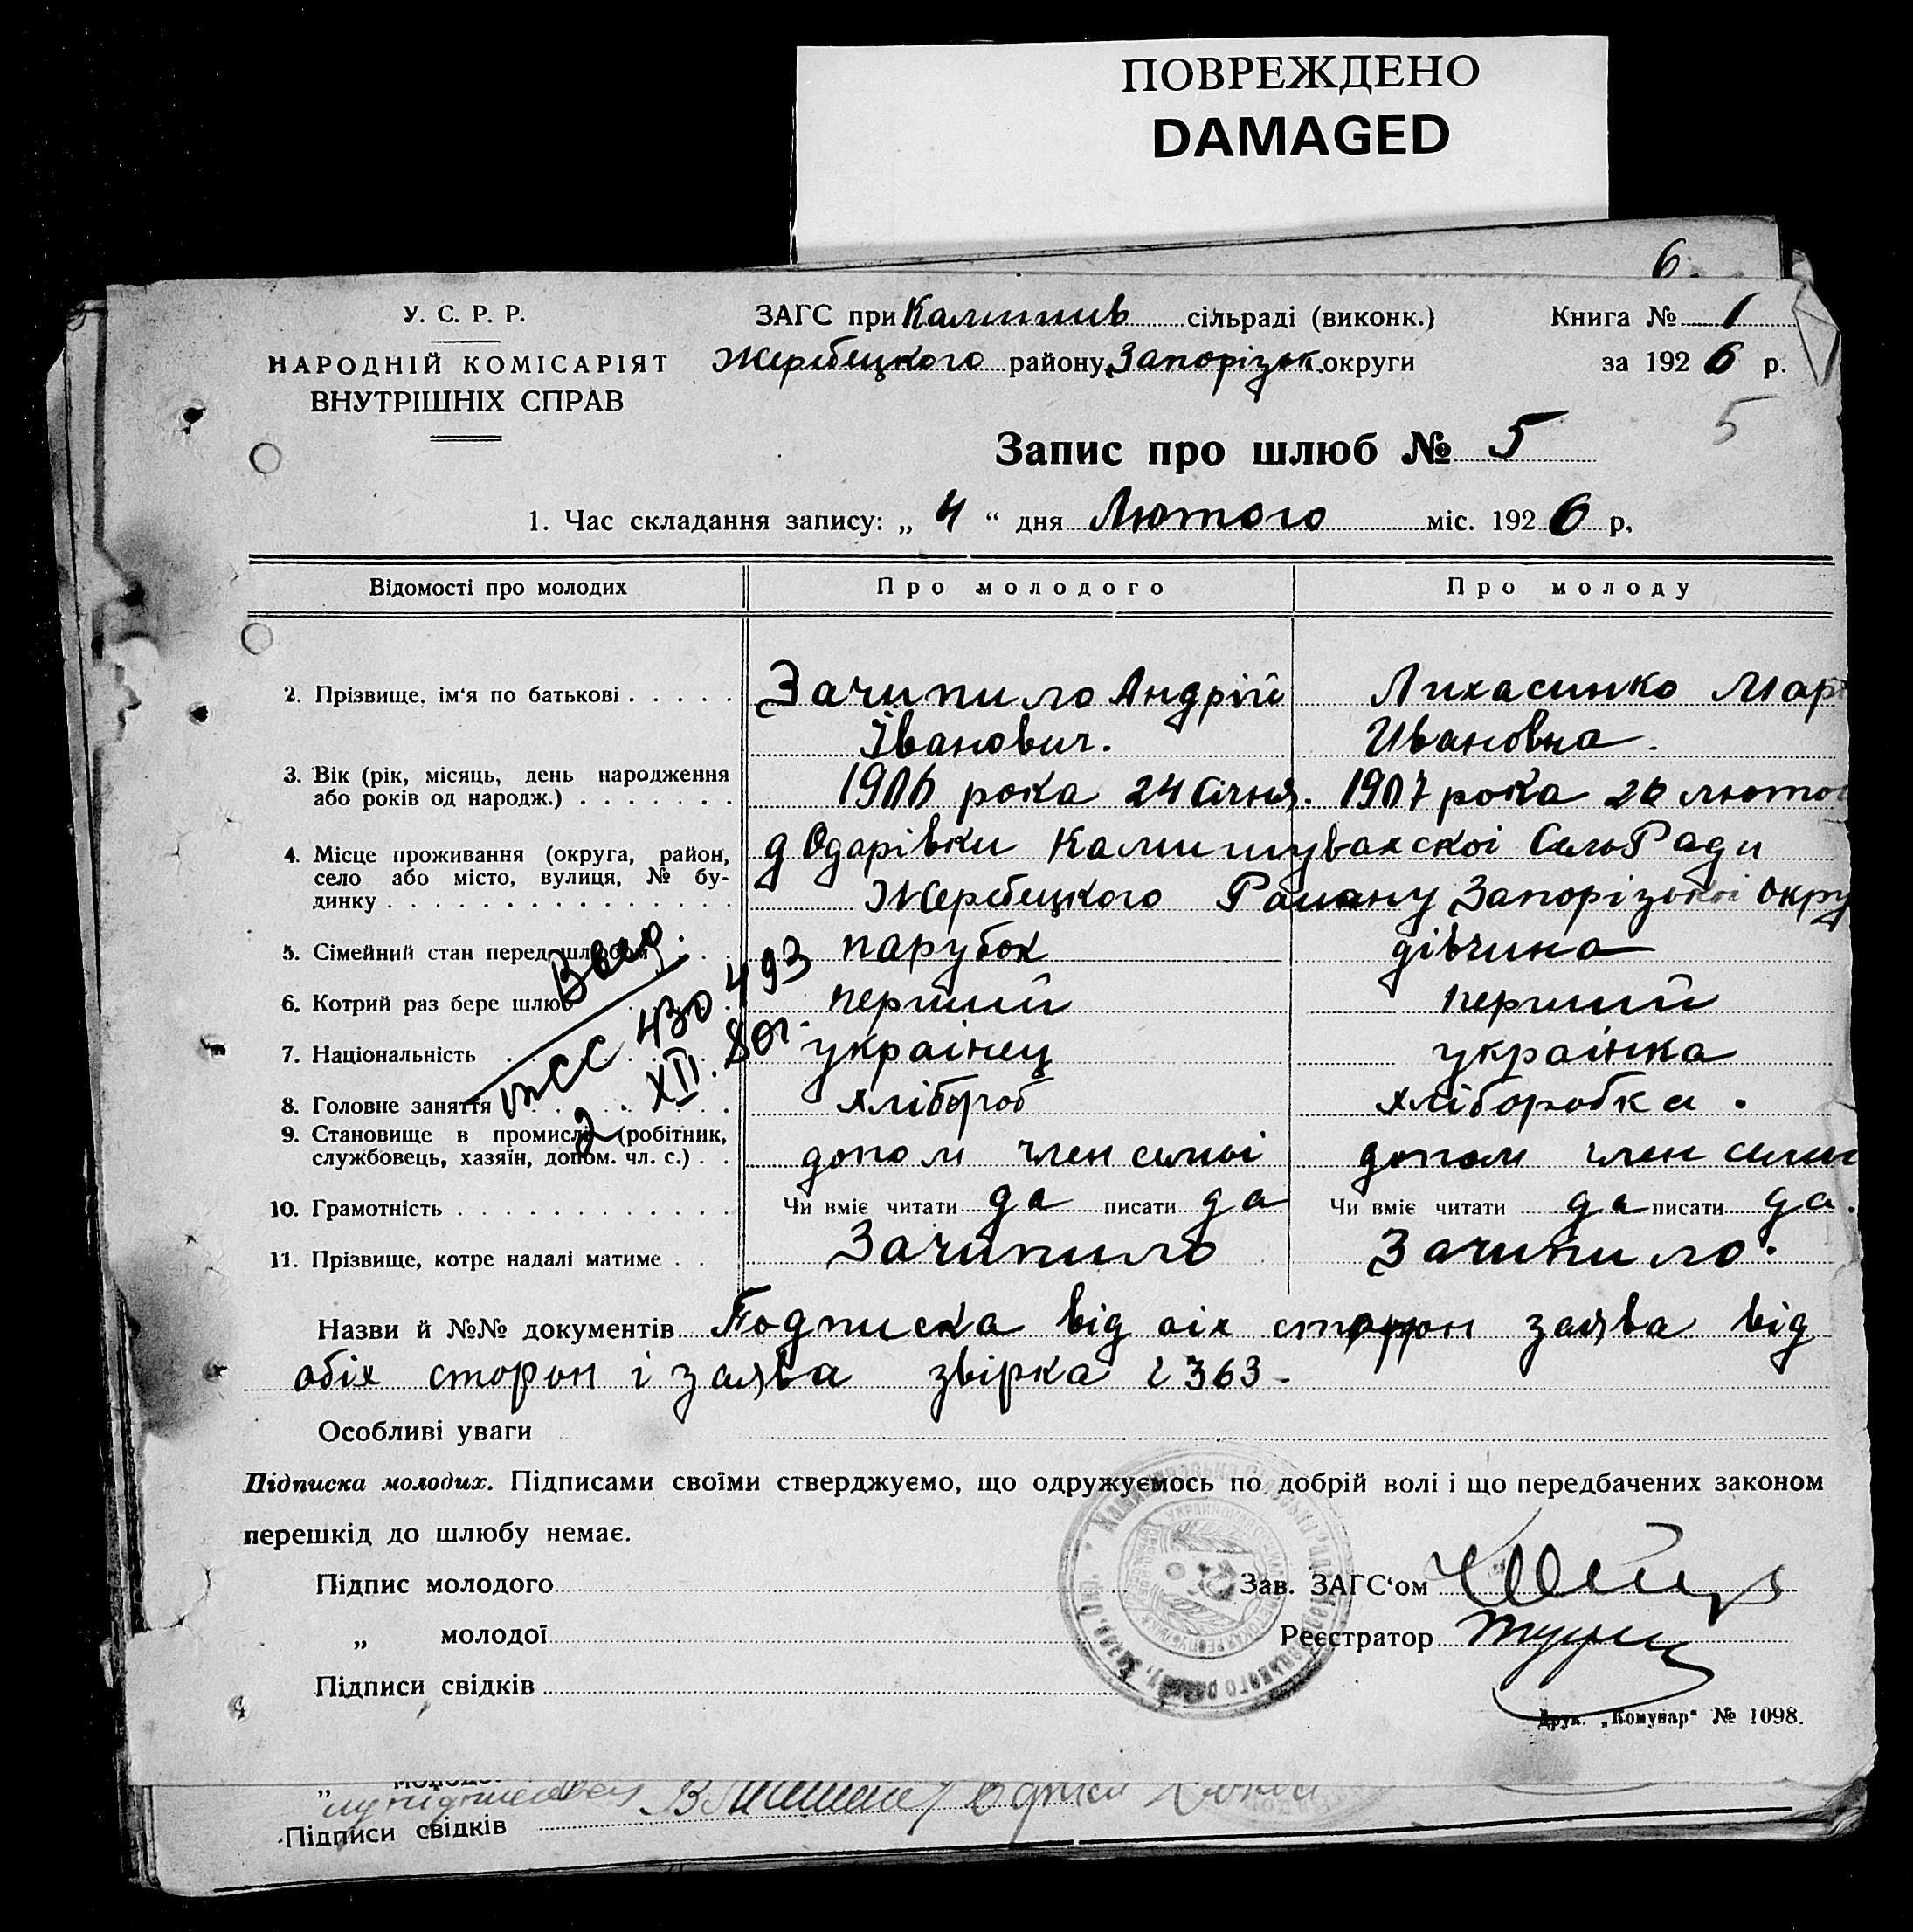 ПОВРЕЖДЕНО
DAMAGED
6.
У. С. Р. Р.
НАРОДНІЙ КОМІСАРІЯТ
ВНУТРІШНІХ СПРАВ
ЗАГС при сільраді (виконк.)
Жеребецкого району Запорізьк. округи
Книга № 1
за 1926 р.
5
Запис про шлюб № 5
1. Час складання запису: „ 4 “ дня Лютого міс. 1926 р.
Відомості про молодих Про молодого Про молоду
2. Прізвище, ім'я по батькові . . . . . Зачипило Андрій Лихасинко Мар
Іванович. Ивановна.
3. Вік (рік, місяць, день народження
або років од народж.) . . . . . . . 1906 рока 24 Січня. 1907 рока 26 лютог
4. Місце проживання (округа, район,
село або місто, вулиця, № бу-
динку . . . . . . . . . . . . . . .
д Одарівки Камишувахскоі СельРади
Жеребецкого Району Запорізькоі Окру
5. Сімейний стан перед шлюбом . . парубок дівчина
6. Котрий раз бере шлюб перший перший
7. Національність українец українка
8. Головне заняття хлібороб хліборобка.
9. Становище в промислі (робітник,
службовець, хазяїн, допом. чл. с.) . . допом член семьї допом член семьи
10. Грамотність . . . . . . . . . . . . Чи вміє читати да писати да Чи вміє читати да писати да.
11. Прізвище, котре надалі матиме . . Зачипило Зачипило.
430493
2. XII. 80г.
Назви й №№ документів Подписка від оіх сторон заява від
обіх сторон і заява звірка 2363-
Особливі уваги
Підписка молодих. Підписами своїми стверджуємо, що одружуємось по добрій волі і що передбачених законом
перешкід до шлюбу немає.
Підпис молодого
„ молодої
Підписи свідків
Зав. ЗАГС‘ом
Реєстратор
Друк. „Комунар“ № 1098.
Підписи свідків